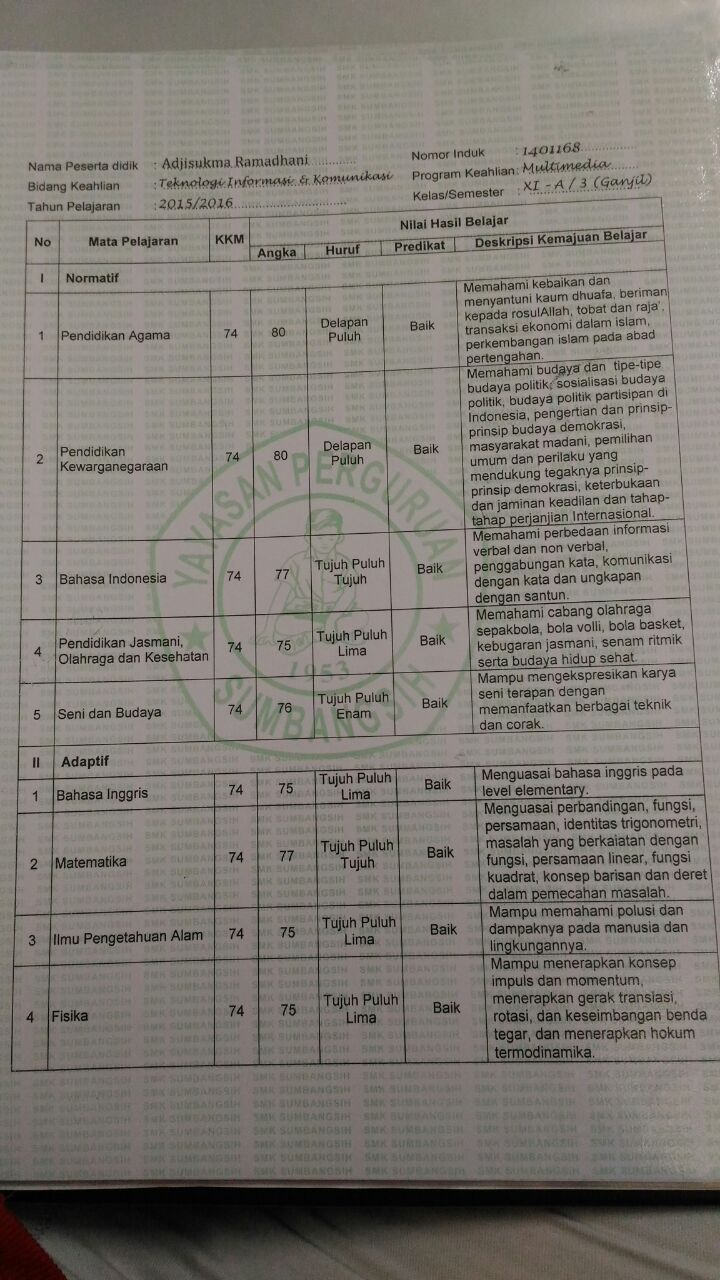 Nama Peserta didik : Adjisukma Ramadhani
Nomor Induk : 1401168
Bidang Keahlian : Teknologi Informasi & Komunikasi
Program Keahlian: Multimedia
Tahun Pelajaran : 2015/2016
Kelas/Semester : XI - A / 3 (Ganjil)
No Mata Pelajaran KKM Nilai Hasil Belajar
Angka Huruf Predikat Deskripsi Kemajuan Belajar
I Normatif
1 Pendidikan Agama 74 80 Delapan Puluh Baik
Memahami kebaikan dan
menyantuni kaum dhuafa, beriman
kepada rosulAllah, tobat dan raja',
transaksi ekonomi dalam islam,
perkembangan islam pada abad
pertengahan.
2 Pendidikan Kewarganegaraan 74 80 Delapan Puluh Baik
Memahami budaya dan tipe-tipe
budaya politik, sosialisasi budaya
politik, budaya politik partisipan di
Indonesia, pengertian dan prinsip-
prinsip budaya demokrasi,
masyarakat madani, pemilihan
umum dan perilaku yang
mendukung tegaknya prinsip-
prinsip demokrasi, keterbukaan
dan jaminan keadilan dan tahap-
tahap perjanjian Internasional.
3 Bahasa Indonesia 74 77 Tujuh Puluh Tujuh Baik
Memahami perbedaan informasi
verbal dan non verbal,
penggabungan kata, komunikasi
dengan kata dan ungkapan
dengan santun.
4 Pendidikan Jasmani, Olahraga dan Kesehatan 74 75 Tujuh Puluh Lima Baik
Memahami cabang olahraga
sepakbola, bola volli, bola basket,
kebugaran jasmani, senam ritmik
serta budaya hidup sehat.
5 Seni dan Budaya 74 76 Tujuh Puluh Enam Baik
Mampu mengekspresikan karya
seni terapan dengan
memanfaatkan berbagai teknik
dan corak.
II Adaptif
1 Bahasa Inggris 74 75 Tujuh Puluh Lima Baik
Menguasai bahasa inggris pada
level elementary.
2 Matematika 74 77 Tujuh Puluh Tujuh Baik
Menguasai perbandingan, fungsi,
persamaan, identitas trigonometri,
masalah yang berkaiatan dengan
fungsi, persamaan linear, fungsi
kuadrat, konsep barisan dan deret
dalam pemecahan masalah.
3 Ilmu Pengetahuan Alam 74 75 Tujuh Puluh Lima Baik
Mampu memahami polusi dan
dampaknya pada manusia dan
lingkungannya.
4 Fisika 74 75 Tujuh Puluh Lima Baik
Mampu menerapkan konsep
impuls dan momentum,
menerapkan gerak translasi,
rotasi, dan keseimbangan benda
tegar, dan menerapkan hokum
termodinamika.
YAYASAN PERGURUAN
1953
SUMBANGSIH
SMK SUMBANGSIH